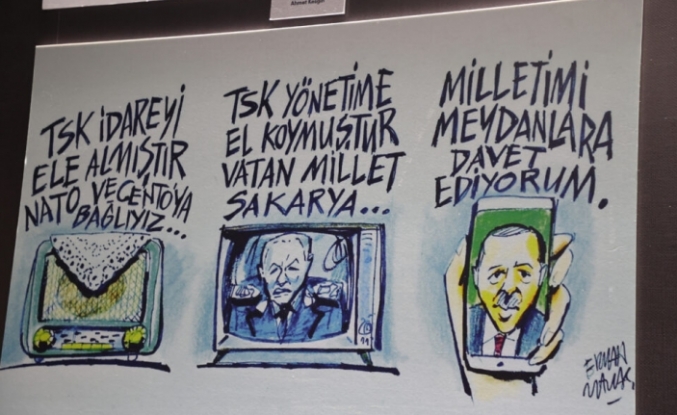 Ahmet Keskin
TSK İDAREYİ
ELE ALMIŞTIR
NATO VE CENTO'YA
BAĞLIYIZ...
TSK YÖNETİME
EL KOYMUŞTUR
VATAN MİLLET
SAKARYA...
MİLLETİMİ
MEYDANLARA
DAVET
EDİYORUM.